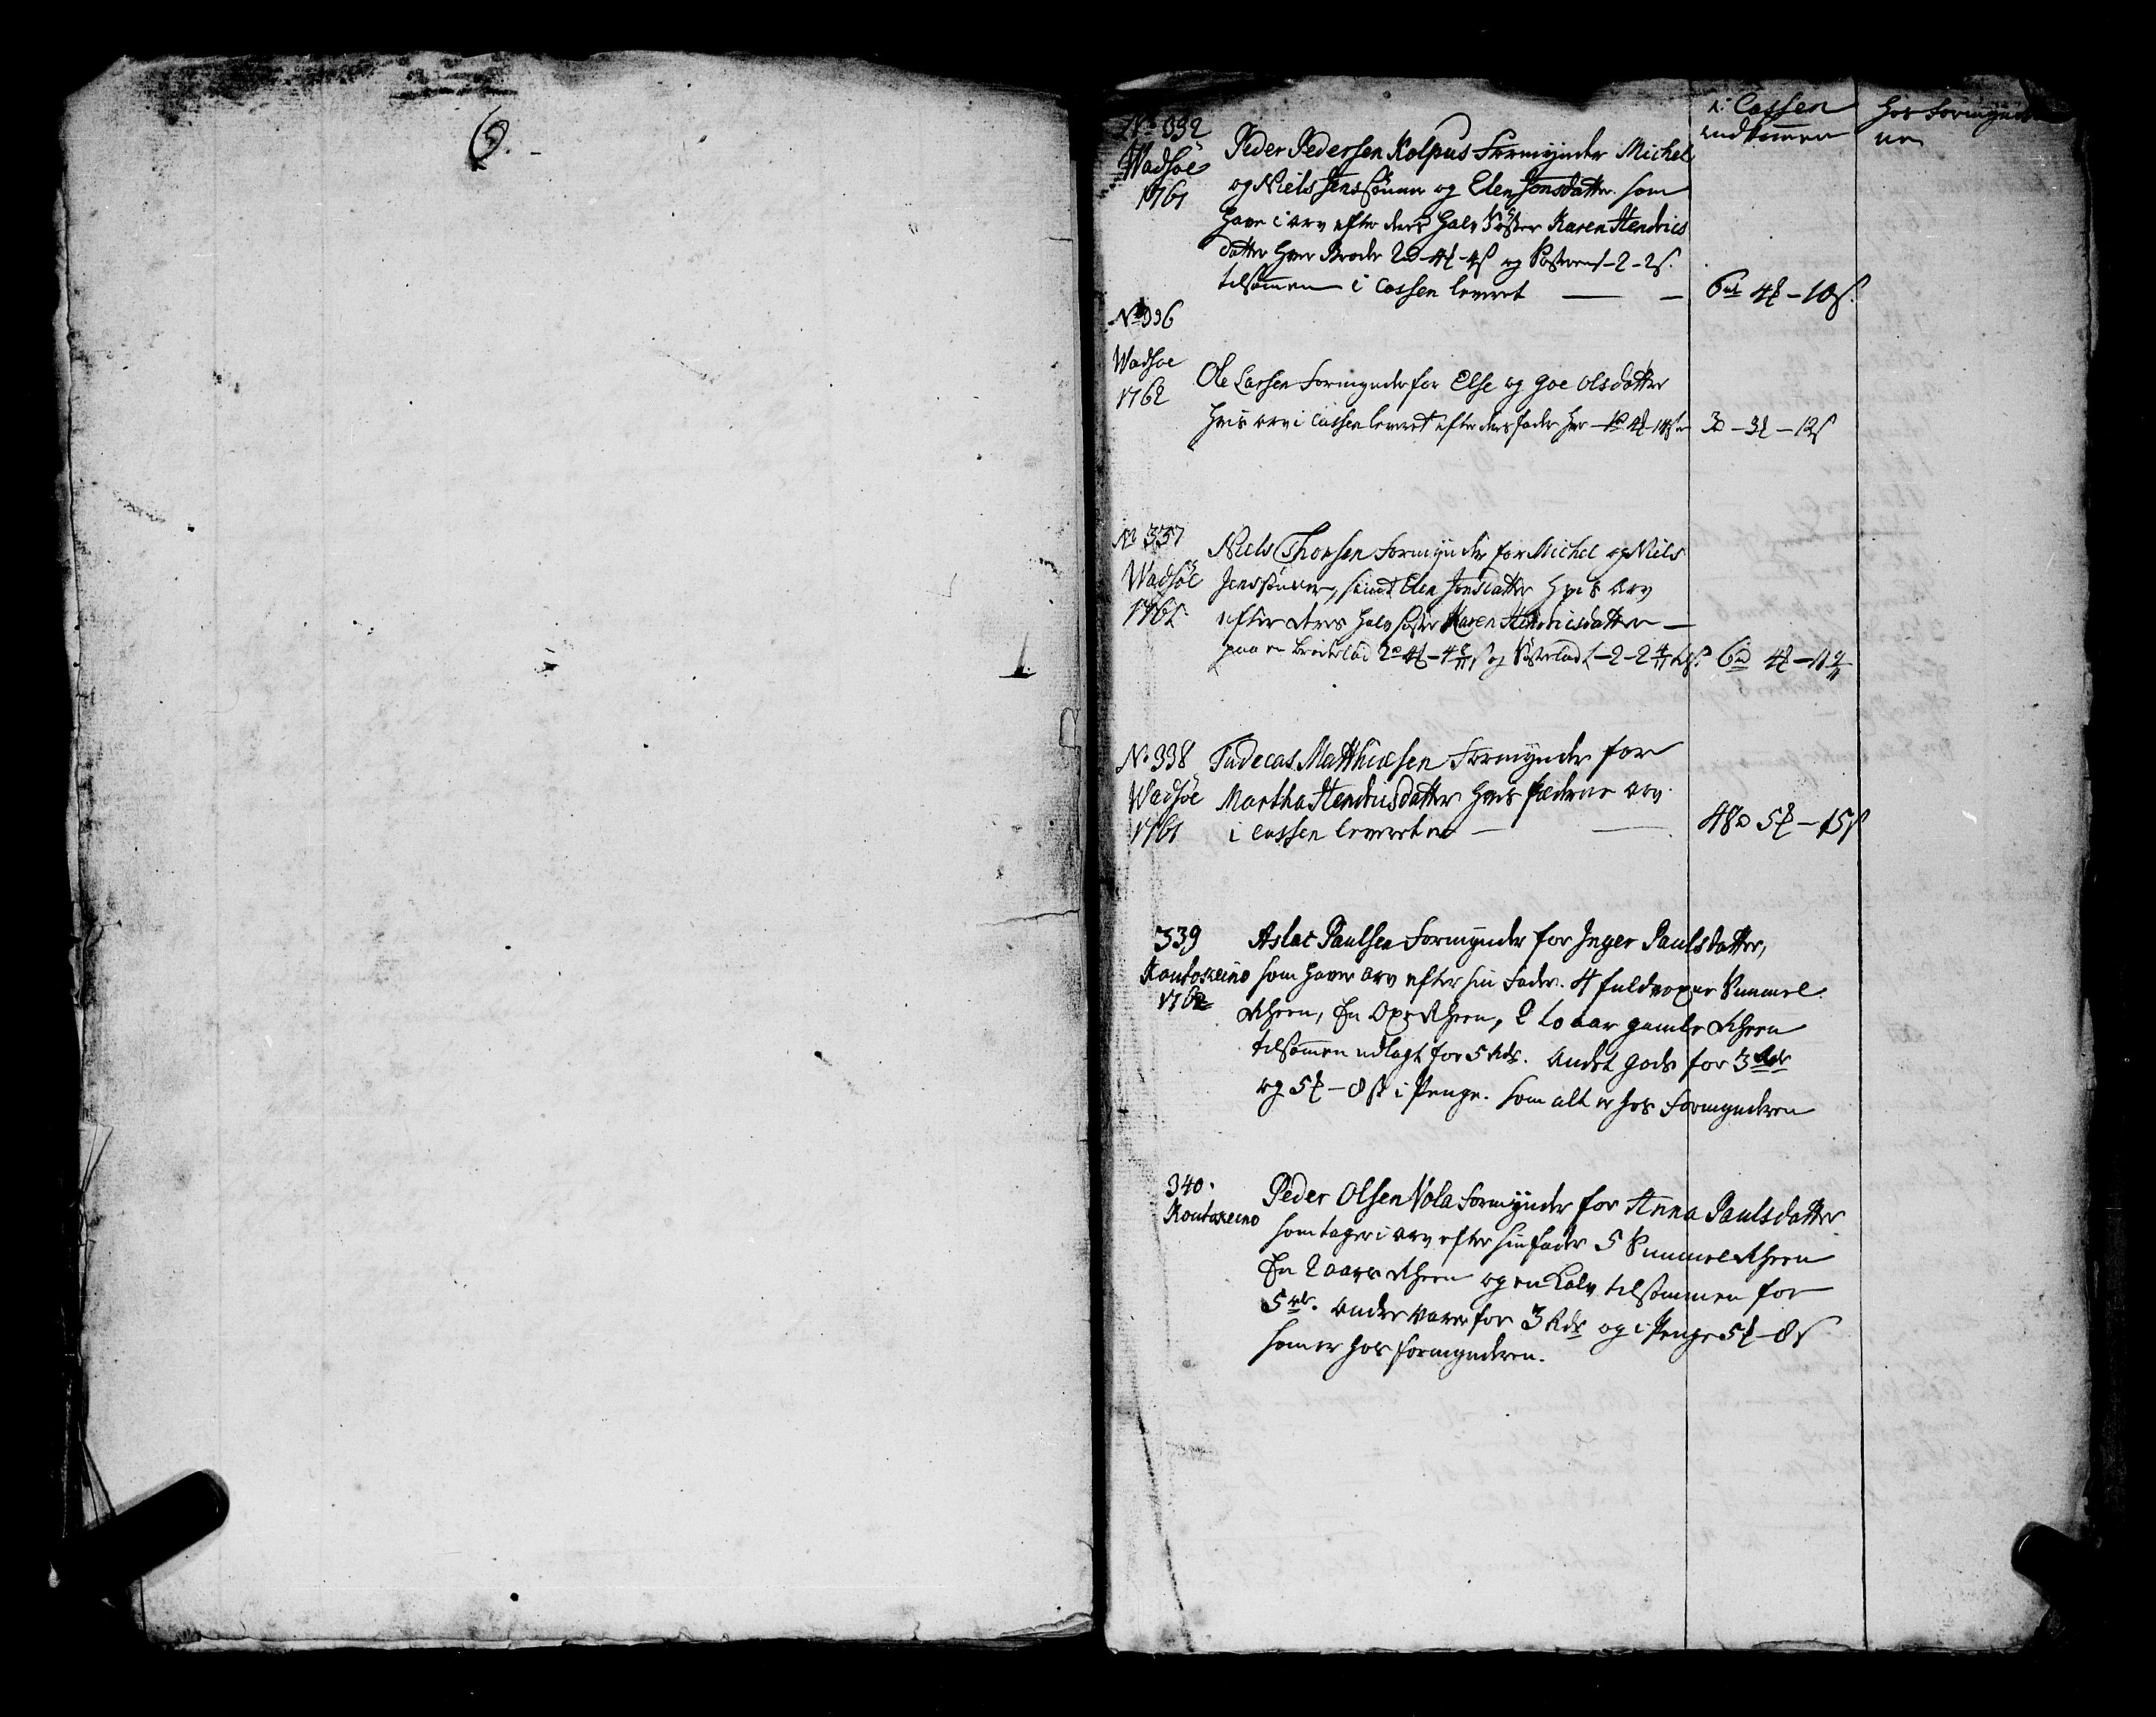 6.
i Cassen
indkommen
hos Formynder
ne
No 332
Wadsöe
1761
Peder Pedersen Kolpus Formynder Michel
og Niels Jenssönner og Elen Jonsdatter som
have i arv efter deres halv Söster Karen Hendrics
datter hver Broder 2 rd 4 ß og Sösteren 1-2-2 ß.
tilsammen i Cassen leveret — — 6 rd 4 — 10 ß.
No 336
Wadsoe
1762
Ole Larsen Formynder for Else og Goe Olsdatter
hvis arv i Cassen leveret efter deres fader hver 3 — 3 — 12 ß
No 337
Wadsöe
1761
Niels Thorsen Formynder for Michel og Niels
Jenssönner, samt Elen Jonsdatter hvis Arv
efter deres halv söster Karen Hendricsdatter —
paa en broderlod 2 rd 4 — 4 8/11 ß og Sösterlod 1-2-2 4/11 6 rd 4 — 11 9/11
No 338
Wadsöe
1761
Fadecas Matthiesen Formynder for
Martha Hendricsdatter hvis fæderne arv
i Cassen leveret er — — 48 rd 5 — 15 ß
339
Koutokeino
1762
Aslac Paulsen Formynder for Inger Paulsdatter,
som haver arv efter sin Fader. 4 fuldvoxne Simmel
Rheen, En Oxe Rheen, 2 to aar gamle Rheen
tilsammen udlagt for 5 Rdr. Andet gods for 3 Rdr
og 5 — 8 ß i Penge. som alt er hos Formynderen
340.
Koutokeino
Peder Olsen Nola Formynder for Anna Paulsdatter
som tager i arv efter sin fader 5 Simmel Rheen
En 2 aars Rheen og en Kalv tilsammen for
5 rdr. andre varer for 3 Rdr og i Penge 5 — 8 ß
som er hos formynderen.